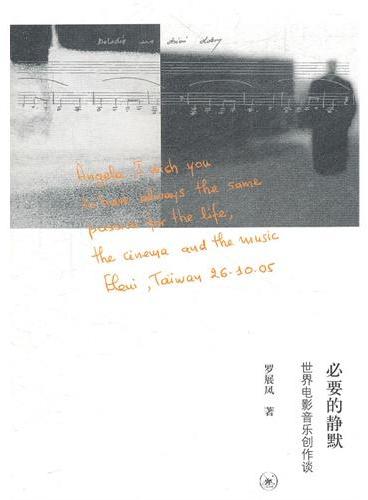 Angela I wish you
to have always the same
passion for the life,
the cinema and the music
Eleni, Taiwan 26-10.05
必要的静默
世界电影音乐创作谈
罗展凤 著